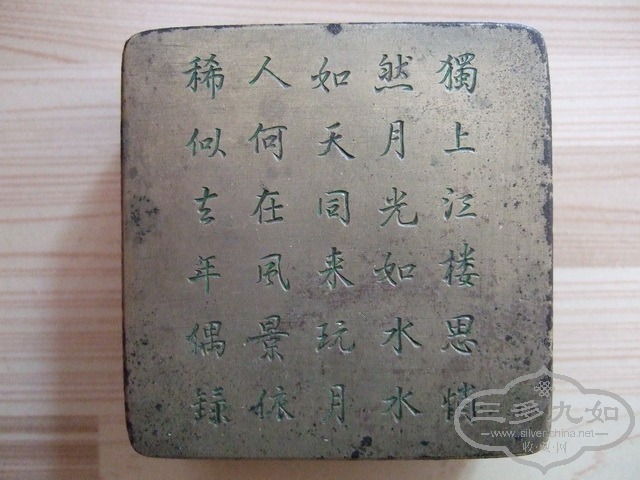 獨上江楼思悄
然月光如水水
如天同来玩月
人何在風景依
稀似去年偶録
三多九如
www.silverchina.net
收·藏·网